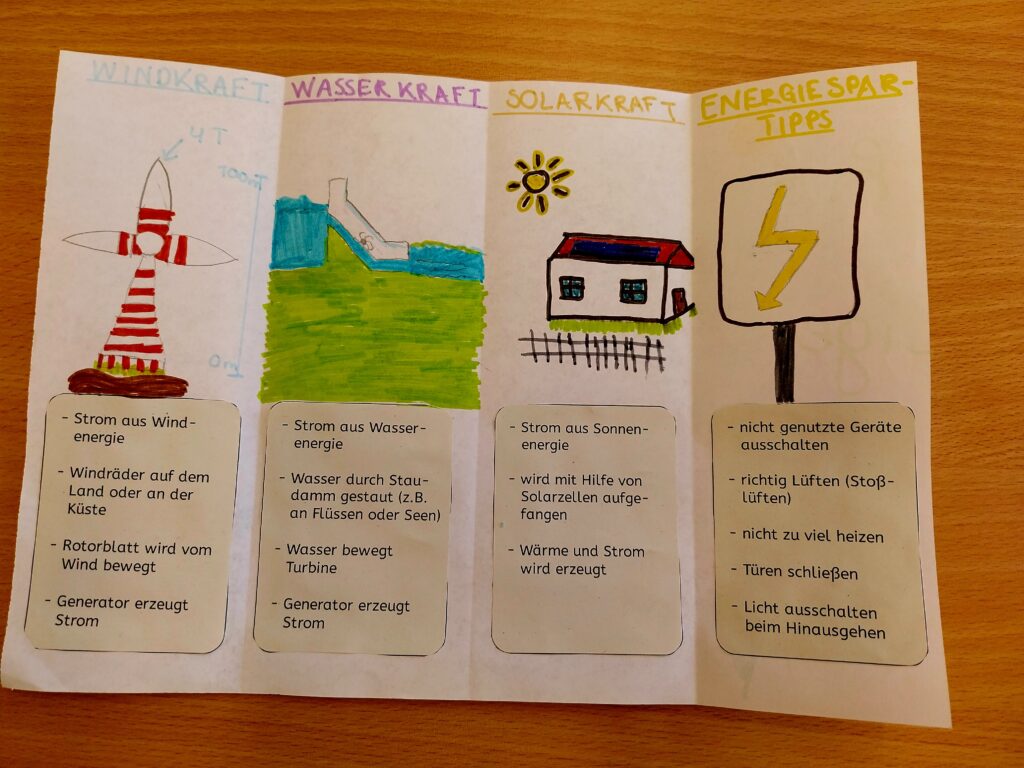 WINDKRAFT
4T
100m
0m
- Strom aus Wind-
energie
- Windräder auf dem
Land oder an der
Küste
- Rotorblatt wird vom
Wind bewegt
- Generator erzeugt
Strom
WASSERKRAFT
- Strom aus Wasser-
energie
- Wasser durch Stau-
damm gestaut (z.B.
an Flüssen oder Seen)
- Wasser bewegt
Turbine
- Generator erzeugt
Strom
SOLARKRAFT
- Strom aus Sonnen-
energie
- wird mit Hilfe von
Solarzellen aufge-
fangen
- Wärme und Strom
wird erzeugt
ENERGIESPAR-
TIPPS
- nicht genutzte Geräte
ausschalten
- richtig Lüften (Stoß-
lüften)
- nicht zu viel heizen
- Türen schließen
- Licht ausschalten
beim Hinausgehen